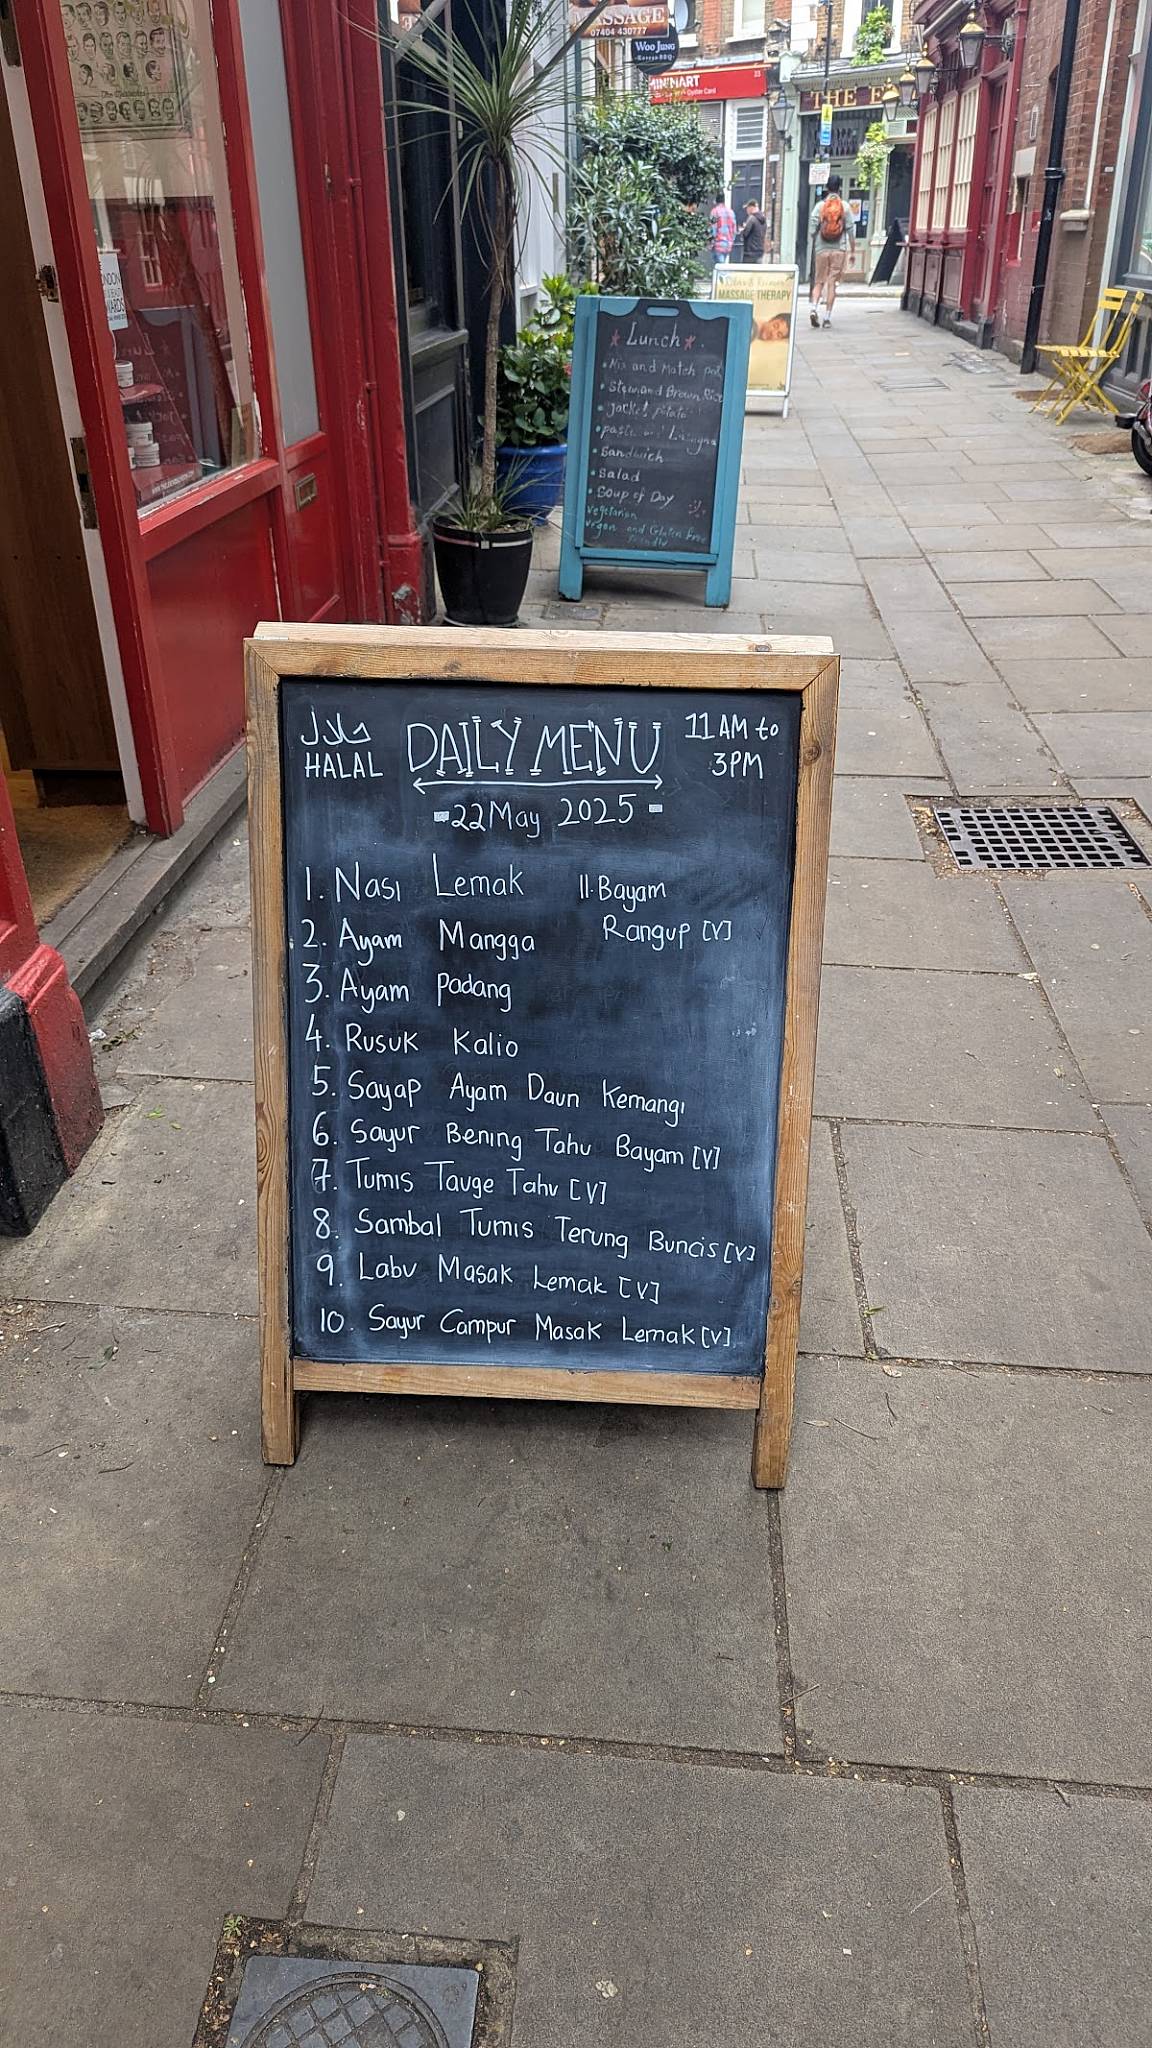 MASSAGE
07404 430777
Woo Jung
Korean BBQ
MINIMART
33
Oyster Card
THE
MASSAGE THERAPY
Lunch
• Mix and Match
• Stew and Brown Rice
• Jacket potato
• pasta and
• Sandwich
• Salad
• Soup of Day
vegetarian
vegan and Gluten free
friendly
حلال
HALAL
DAILY MENU
11 AM to
3PM
22 May 2025
1. Nasi Lemak
2. Ayam Mangga
3. Ayam Padang
4. Rusuk Kalio
5. Sayap Ayam Daun Kemangi
6. Sayur Bening Tahu Bayam [V]
7. Tumis Tauge Tahu [V]
8. Sambal Tumis Terung Buncis [V]
9. Labu Masak Lemak [V]
10. Sayur Campur Masak Lemak [V]
11. Bayam
Rangup [V]